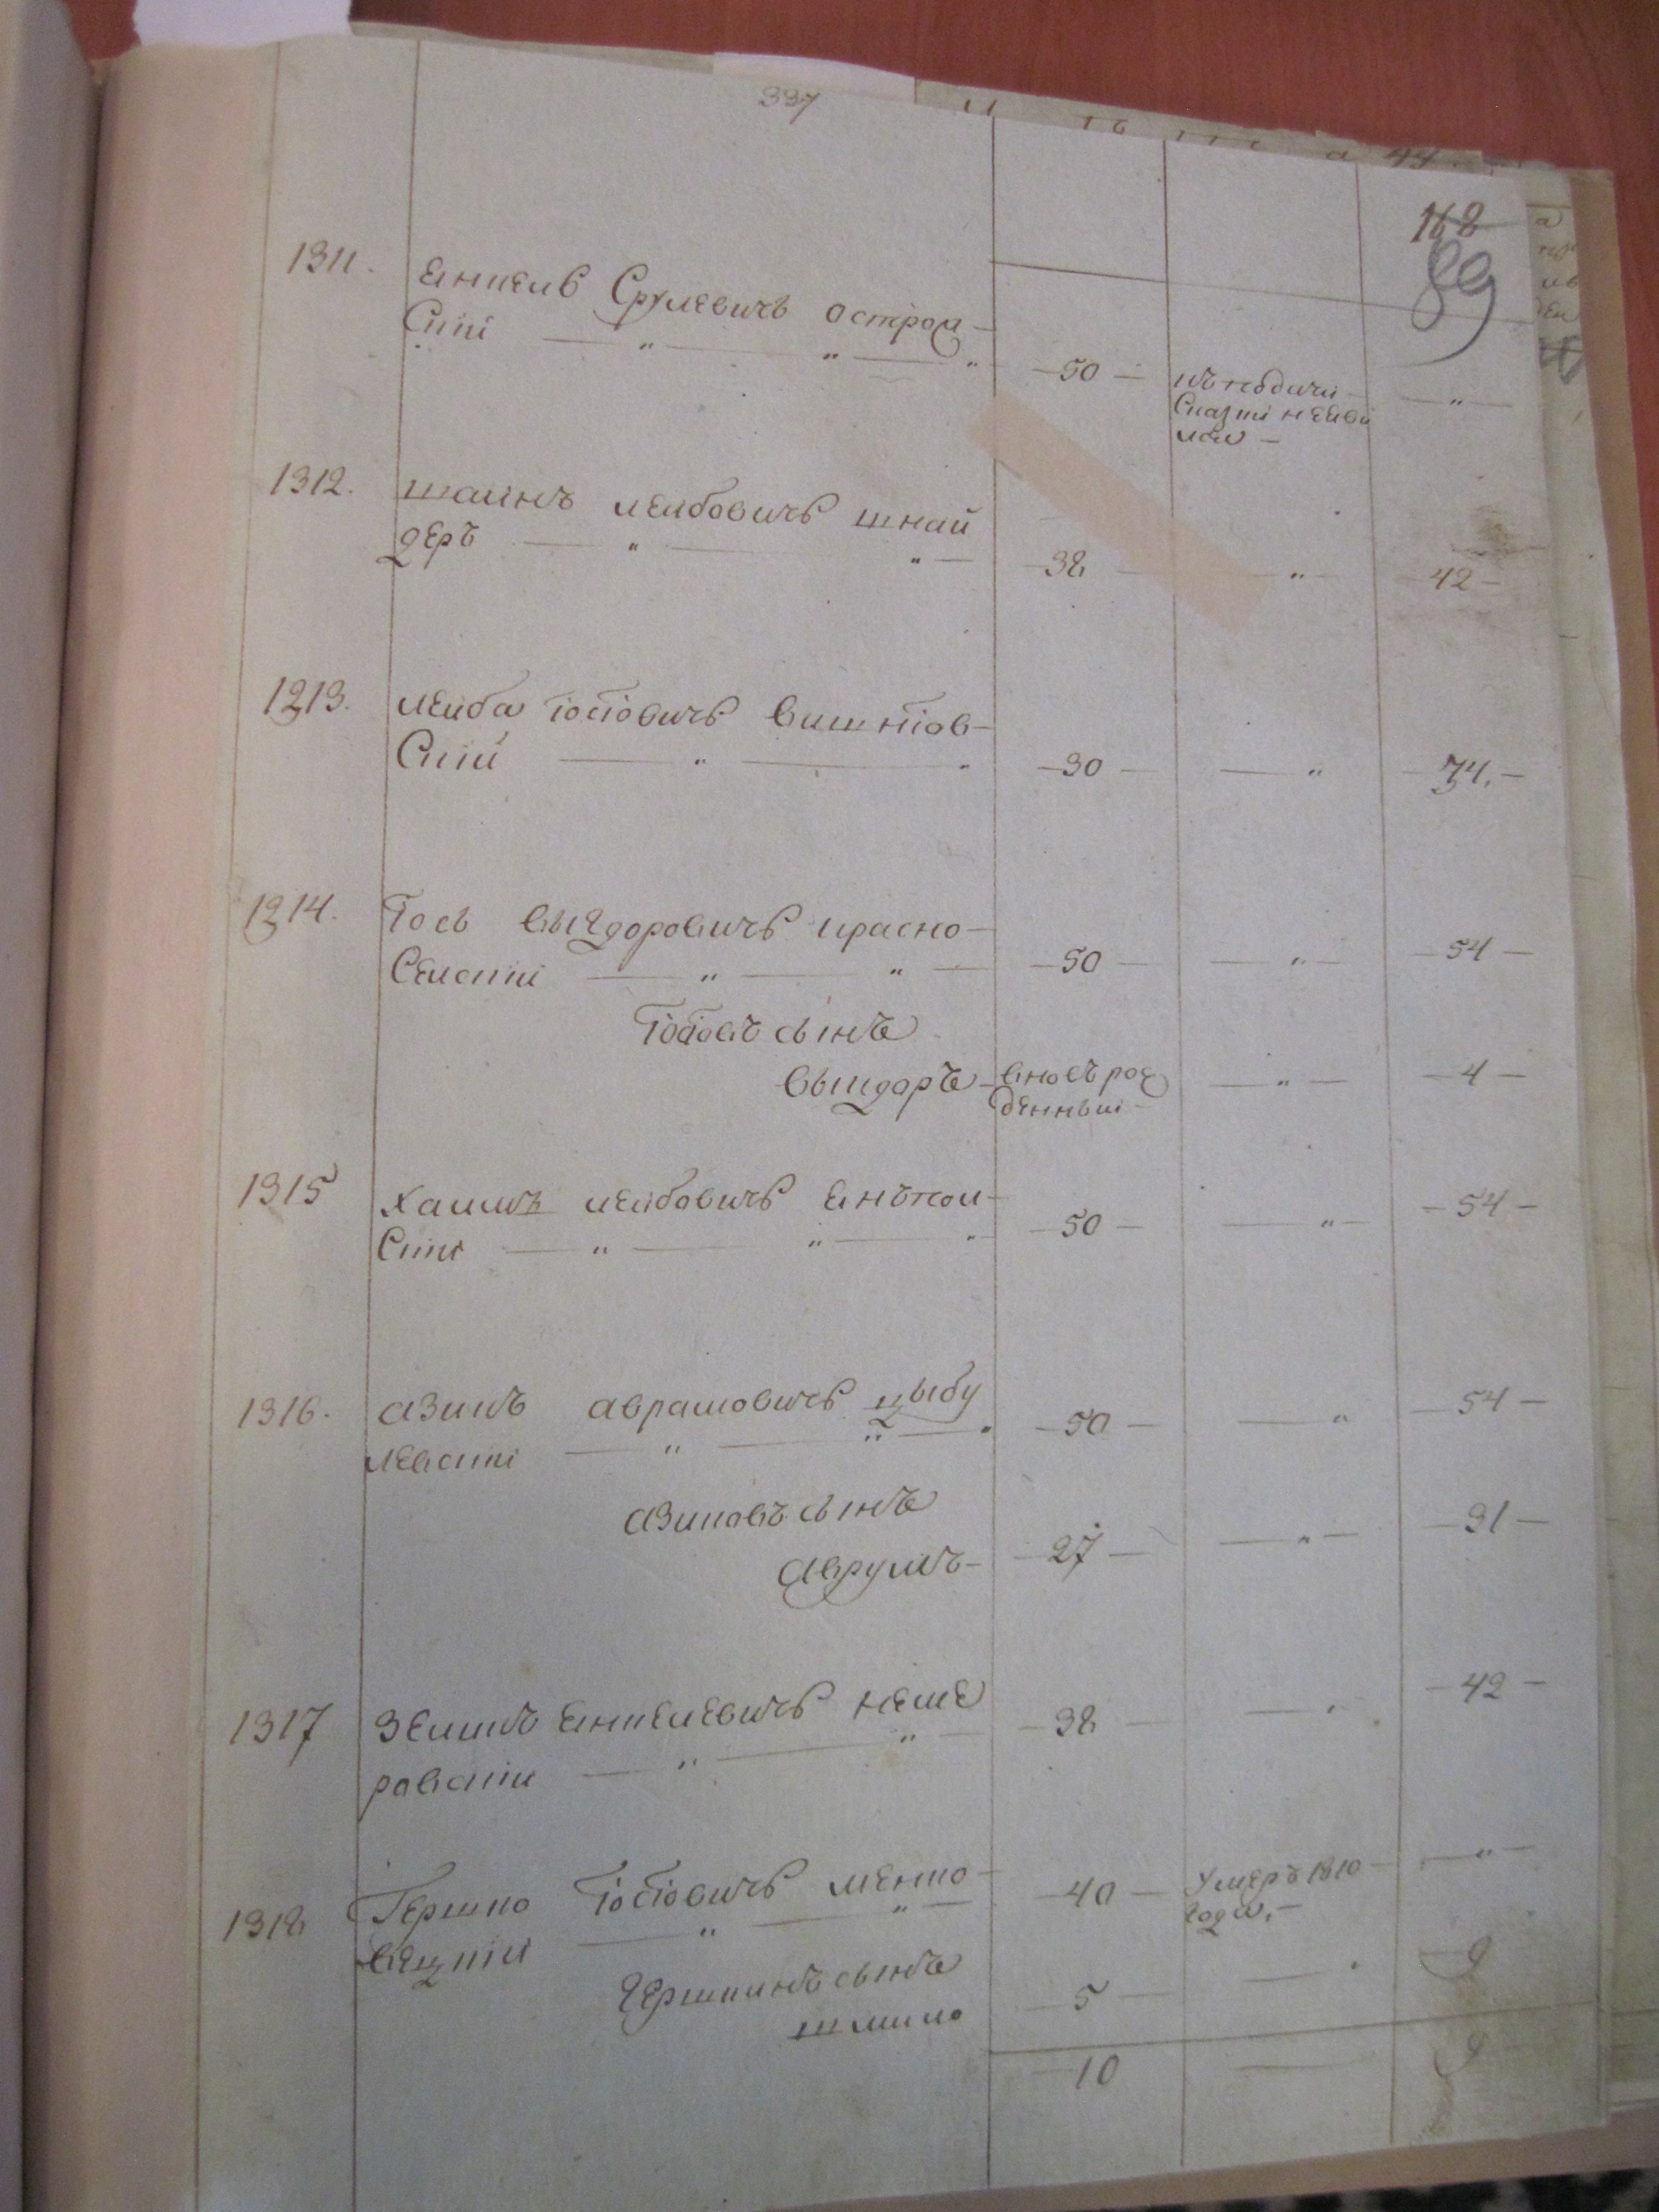 337
168
89
1311. Янкель Срулевичъ Остров-
ский — " — " — " — 50 — къ подачи — " —
сказки неяви
лся —
1312. Шаинъ Леибовичъ Шнай
деръ — " — " — 38 — " — 42 —
1313. Леиба Іосіовичъ Вишніов-
ский — " — " — 30 — " — 74. —
1314. Іось Выгдоровичъ Красно-
селскии — " — " — 50 — " — 54 —
Іосіовъ сынъ
Выгдоръ — вновъ рож — " — 4 —
денныи —
1315 Хаимъ Леибовичъ Янъпол-
ский — " — " — " — 50 — " — 54 —
1316. Азикъ Аврамовичъ Цыбу
левскии — " — " — 50 — " — 54 —
Азиковъ сынъ
Аврумъ — 27 — " — 31 —
1317 Зеликъ Янкелевичъ Неме
ровскии — " — " — 38 — " — 42 —
1318 Гершко Іосіовичъ Менко-
вецкии — " — " — 40 — Умеръ 1810 — " —
года. —
Гершкинъ сынъ
Шлиомо 5 — " — 9
10 — 9